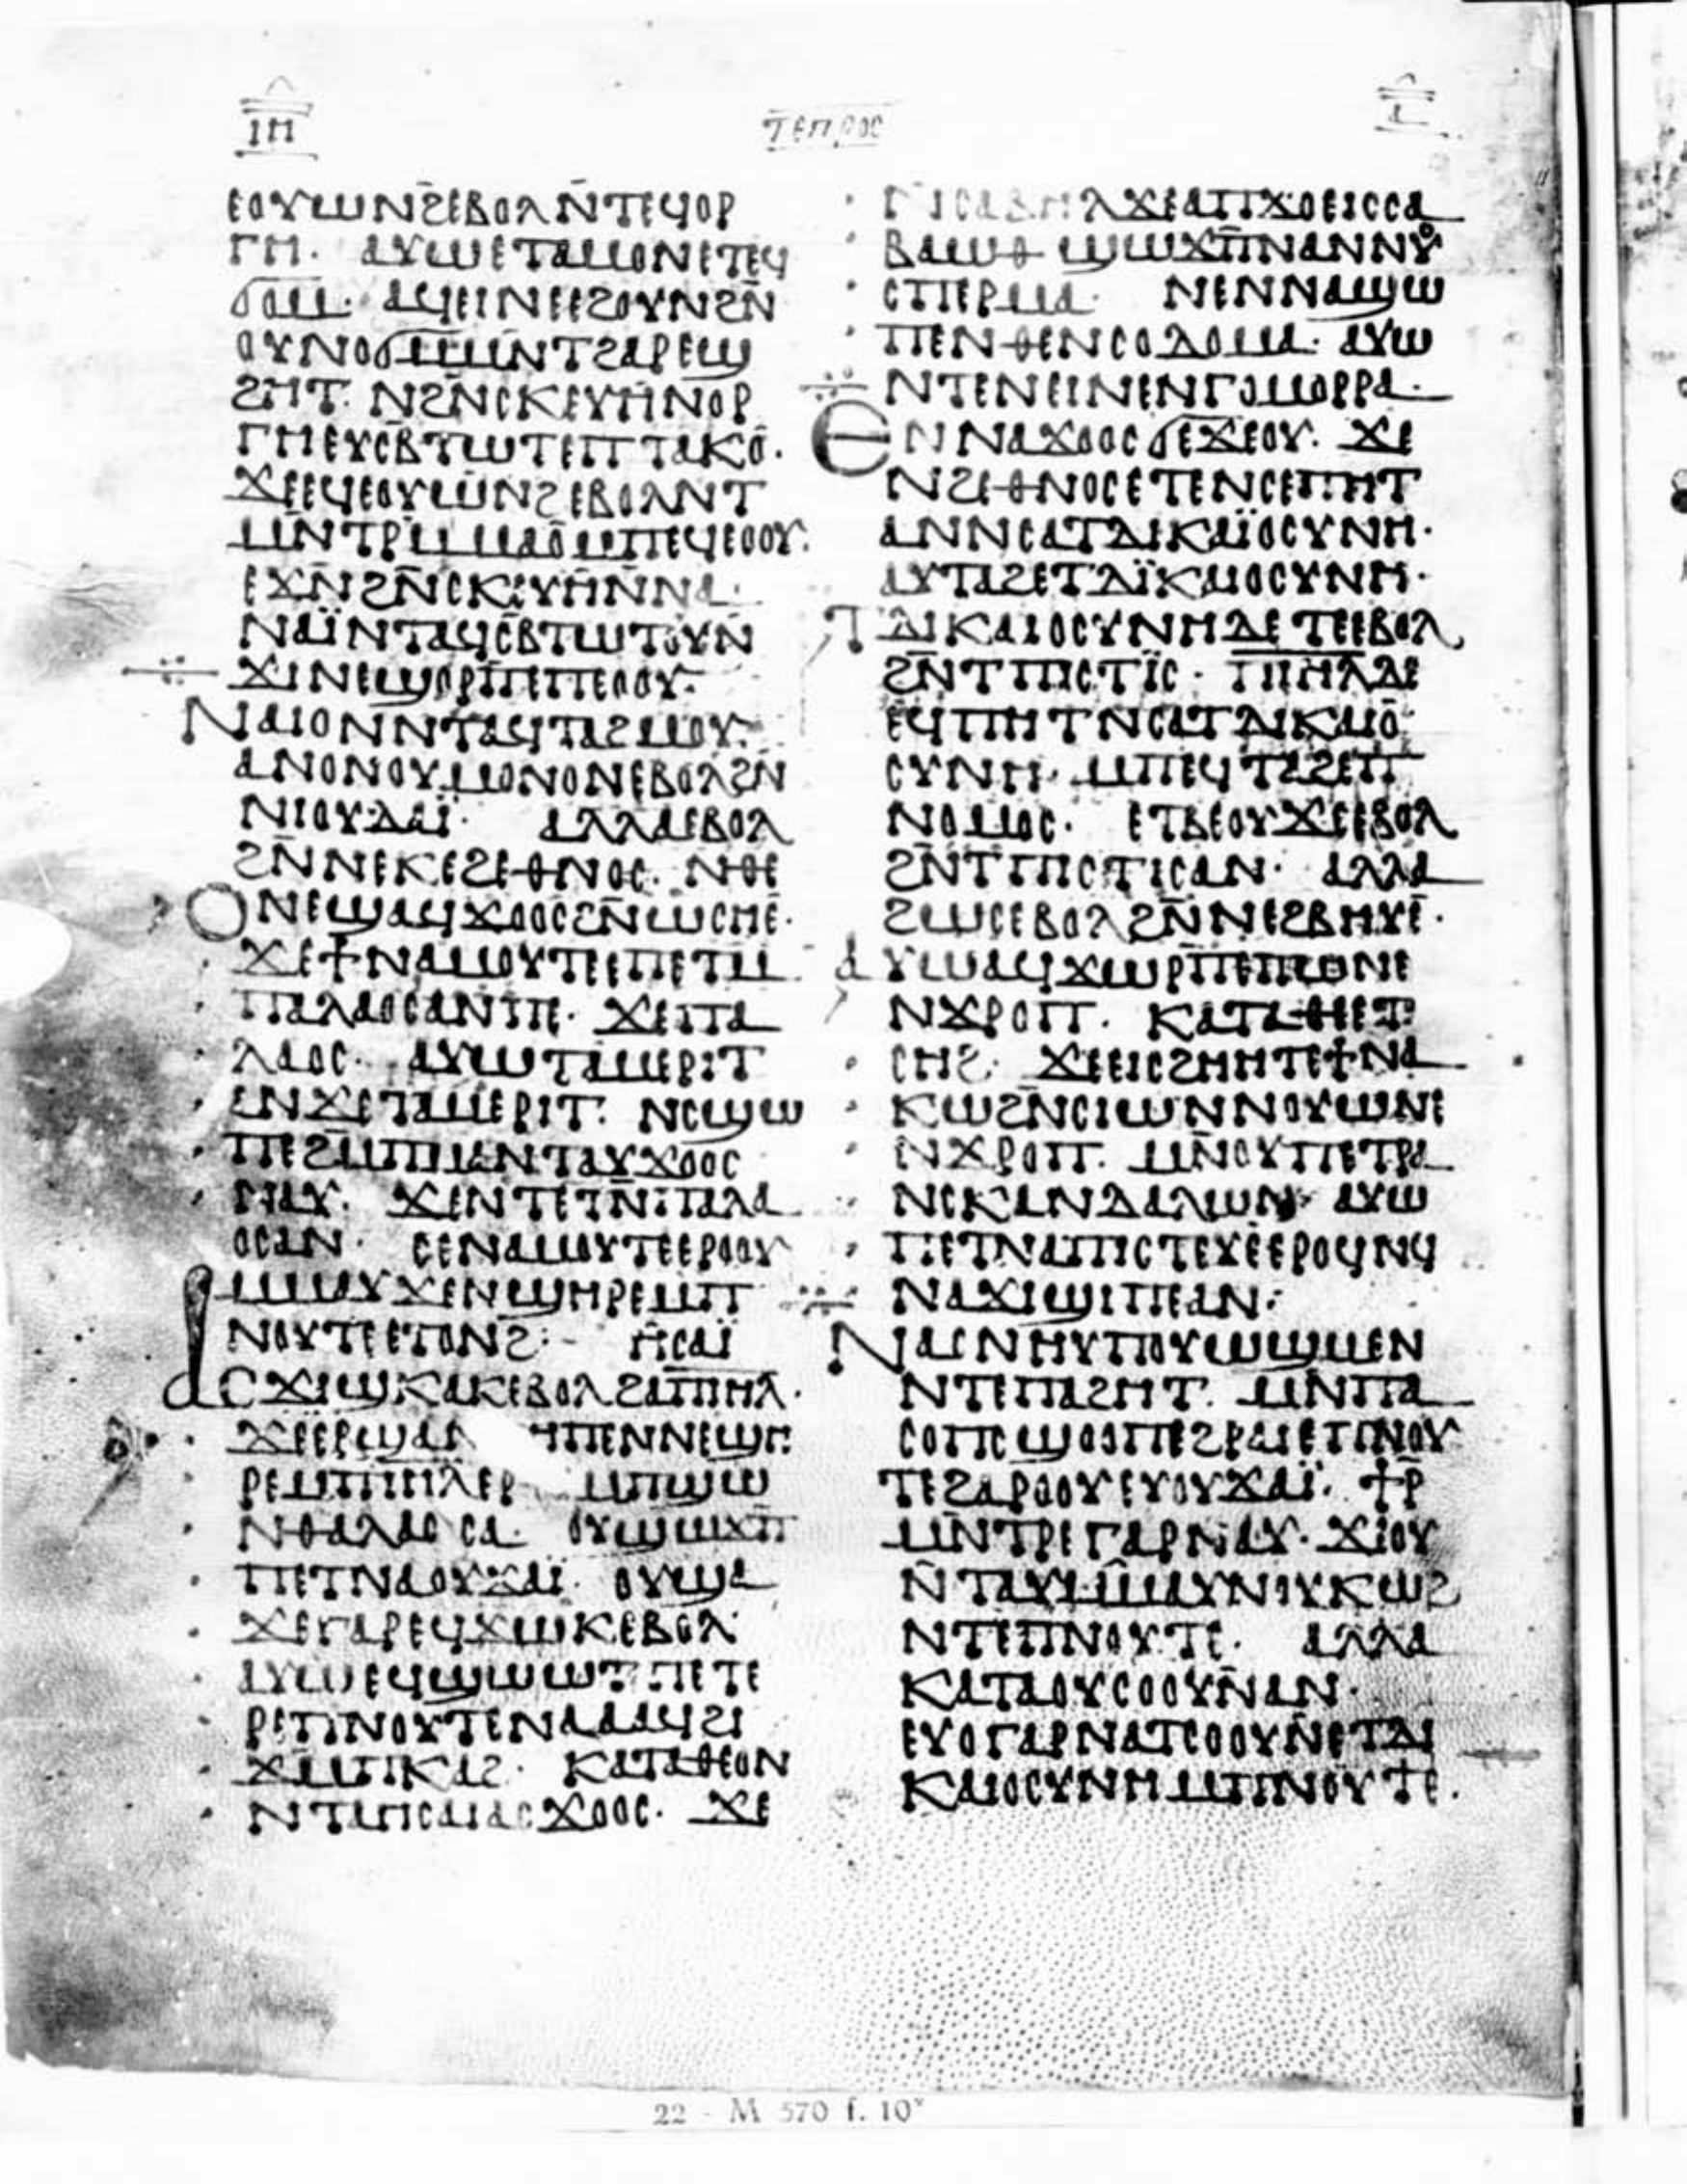 ⲓⲏ
ⲧⲉⲡⲣⲟⲥ
ⲉⲟⲩⲱⲛϩⲉⲃⲟⲗⲛ̄ⲧⲉϥⲟⲣ
ⲅⲏ· ⲁⲩⲱⲉⲧⲁⲙⲟⲛⲉⲧⲉϥ
ϭⲟⲙ· ⲁϥⲉⲓⲛⲉⲉϩⲟⲩⲛϩⲛ̄
ⲟⲩⲛⲟϭⲙ̄ⲙⲛⲧϩⲁⲣⲉϣ
ϩⲏⲧ· ⲛϩⲛ̄ⲥⲕⲉⲩⲏⲛⲟⲣ
ⲅⲏⲉⲩⲥⲃ̄ⲧⲱⲧⲉⲡⲧⲁⲕⲟ̄·
ϫⲉⲉϥⲉⲟⲩⲱⲛϩⲉⲃⲟⲗⲛⲧ
ⲙⲛ̄ⲧⲣⲙ̄ⲙⲁⲟ̄ⲙⲡⲉϥⲉⲟⲟⲩ·
ⲉϫⲛ̄ϩⲛ̄ⲥⲕⲉⲩⲏⲛ̄ⲛⲁ·
ⲛⲁⲓ̈ⲛⲧⲁϥⲥⲃ̄ⲧⲱⲧⲟⲩⲛ
ϫⲓⲛⲉϣⲟⲣⲡ̄ⲉⲡⲉⲟⲟⲩ·
ⲛⲁⲓⲟⲛⲛⲧⲁϥⲧⲁϩⲙⲟⲩ·
ⲁⲛⲟⲛⲟⲩⲙⲟⲛⲟⲛⲉⲃⲟⲗϩⲛ̄
ⲛⲓⲟⲩⲇⲁⲓ̈· ⲁⲗⲗⲁⲉⲃⲟⲗ
ϩⲛ̄ⲛⲉⲕⲉϩⲉⲑⲛⲟⲥ· ⲛⲑⲉ
ⲟⲛⲉϣⲁϥϫⲟⲟⲥϩⲛ̄ⲱⲥⲏⲉ̄·
ϫⲉϯⲛⲁⲙⲟⲩⲧⲉⲉⲡⲉⲧⲙ
ⲡⲁⲗⲁⲟⲥⲁⲛⲡⲉ· ϫⲉⲡⲁ
ⲗⲁⲟⲥ· ⲁⲩⲱⲧⲁⲙⲉⲣⲓⲧ
ⲁⲛϫⲉⲧⲁⲙⲉⲣⲓⲧ· ⲛⲥϣⲱ
ⲡⲉϩⲙ̄ⲡⲙⲁⲛⲧⲁⲩϫⲟⲟⲥ
ⲛⲁⲩ· ϫⲉⲛⲧⲉⲧⲛ̄ⲡⲁⲗⲁ
ⲟⲥⲁⲛ· ⲥⲉⲛⲁⲙⲟⲩⲧⲉⲉⲣⲟⲟⲩ
ⲙⲙⲁⲩϫⲉⲛϣⲏⲣⲉⲙⲡ
ⲛⲟⲩⲧⲉⲉⲧⲟⲛϩ· ⲏⲥⲁⲓ̈
ⲁⲥϫⲓϣⲕⲁⲕⲉⲃⲟⲗϩⲁⲡⲓⲏⲗ·
ϫⲉⲉⲣϣⲁⲛ ⲏⲡⲉⲛⲛⲉϣⲏ
ⲣⲉⲙⲡⲓⲏⲗⲉⲣ ⲙⲡϣⲱ
ⲛⲑⲁⲗⲁⲥⲥⲁ· ⲟⲩϣⲱϫⲡ̄
ⲡⲉⲧⲛⲁⲟⲩϫⲁⲓ̈· ⲟⲩϣⲁ
ϫⲉⲅⲁⲣⲉϥϫⲱⲕⲉⲃⲟⲗ·
ⲁⲩⲱⲉϥϣⲱⲱⲧⲡⲉⲧⲉ
ⲣⲉⲡⲛⲟⲩⲧⲉⲛⲁⲁⲁϥϩⲓ
ϫⲙ̄ⲡⲕⲁϩ· ⲕⲁⲧⲁⲑⲉⲟⲛ
ⲛⲧⲁⲏⲥⲁⲓⲁⲥϫⲟⲟⲥ· ϫⲉ
ⲛⲓⲥⲁⲃⲏⲗϫⲉⲁⲡϫⲟⲉⲓⲥⲥⲁ
ⲃⲁⲱⲑ ϣⲱϫⲡ̄ⲛⲁⲛⲛⲟⲩ
ⲥⲡⲉⲣⲙⲁ· ⲛⲉⲛⲛⲁϣⲱ
ⲡⲉⲛⲑⲉⲛⲥⲟⲇⲟⲙⲁ· ⲁⲩⲱ
ⲛⲧⲉⲛⲉⲓⲛⲉⲛⲅⲟⲙⲟⲣⲣⲁ·
ⲉⲛⲛⲁϫⲟⲟⲥϭⲉϫⲉⲟⲩ· ϫⲉ
ⲛϩⲉⲑⲛⲟⲥⲉⲧⲉⲛⲥⲉⲡⲏⲧ
ⲁⲛⲛⲥⲁⲧⲇⲓⲕⲁⲓ̈ⲟⲥⲩⲛⲏ·
ⲁⲩⲧⲁϩⲉⲧⲇⲓ̈ⲕⲁⲓⲟⲥⲩⲛⲏ·
ⲧⲇⲓⲕⲁⲓⲟⲥⲩⲛⲏⲇⲉⲧⲉⲉⲃⲟⲗ
ϩⲛ̄ⲧⲡⲓⲥⲧⲓ̈ⲥ· ⲡⲓⲏⲗⲇⲉ
ⲉϥⲡⲏⲧⲛⲥⲁⲧⲇⲓⲕⲁⲓⲟ̄
ⲥⲩⲛⲏ· ⲙⲡⲉϥⲧⲁϩⲉⲡ
ⲛⲟⲙⲟⲥ· ⲉⲧⲃⲉⲟⲩϫⲉⲉⲃⲟⲗ
ϩⲛ̄ⲧⲡⲓⲥⲧⲓⲥⲁⲛ· ⲁⲗⲗⲁ
ϩⲱⲥⲉⲃⲟⲗϩⲛ̄ⲛⲉϩⲃⲏⲩⲉ̄·
ⲁⲩⲱⲁϥϫⲱⲣⲡ̄ⲉⲡⲱⲛⲉ
ⲛϫⲣⲟⲡ· ⲕⲁⲧⲁⲑⲉⲉⲧ
ⲥⲏϩ· ϫⲉⲉⲓⲥϩⲏⲏⲧⲉϯⲛⲁ
ⲕⲱϩⲛ̄ⲥⲓⲱⲛⲛⲟⲩⲱⲛⲉ
ⲛϫⲣⲟⲡ· ⲙⲛ̄ⲟⲩⲡⲉⲧⲣⲁ
ⲛⲥⲕⲁⲛⲇⲁⲗⲱⲛ· ⲁⲩⲱ
ⲡⲉⲧⲛⲁⲡⲓⲥⲧⲉⲩⲉⲉⲣⲟϥⲛϥ
ⲛⲁϫⲓϣⲓⲡⲉⲁⲛ·
ⲛⲁⲥⲛⲏⲩⲡⲟⲩⲱϣⲙⲉⲛ
ⲛⲧⲉⲡⲁϩⲏⲧ· ⲙⲛⲡⲁ
ⲥⲟⲡⲥϣⲟⲟⲡⲉϩⲣⲁⲓⲉⲡⲛⲟⲩ
ⲧⲉϩⲁⲣⲟⲟⲩⲉⲩⲟⲩϫⲁⲓ̈· ϯⲣ̄
ⲙⲛⲧⲣⲉⲅⲁⲣⲛⲁⲩ· ϫⲉⲟⲩ
ⲛ̄ⲧⲁⲩⲙ̄ⲙⲁⲩⲛⲟⲩⲕⲱϩ
ⲛⲧⲉⲡⲛⲟⲩⲧⲉ· ⲁⲗⲗⲁ
ⲕⲁⲧⲁⲟⲩⲥⲟⲟⲩⲛ̄ⲁⲛ·
ⲉⲩⲟⲅⲁⲣⲛⲁⲧⲥⲟⲟⲩⲛ̄ⲉⲧⲇⲓ
ⲕⲁⲓⲟⲥⲩⲛⲏⲙⲡⲛⲟⲩⲧⲉ·
22 - M 570 f. 10ᵛ